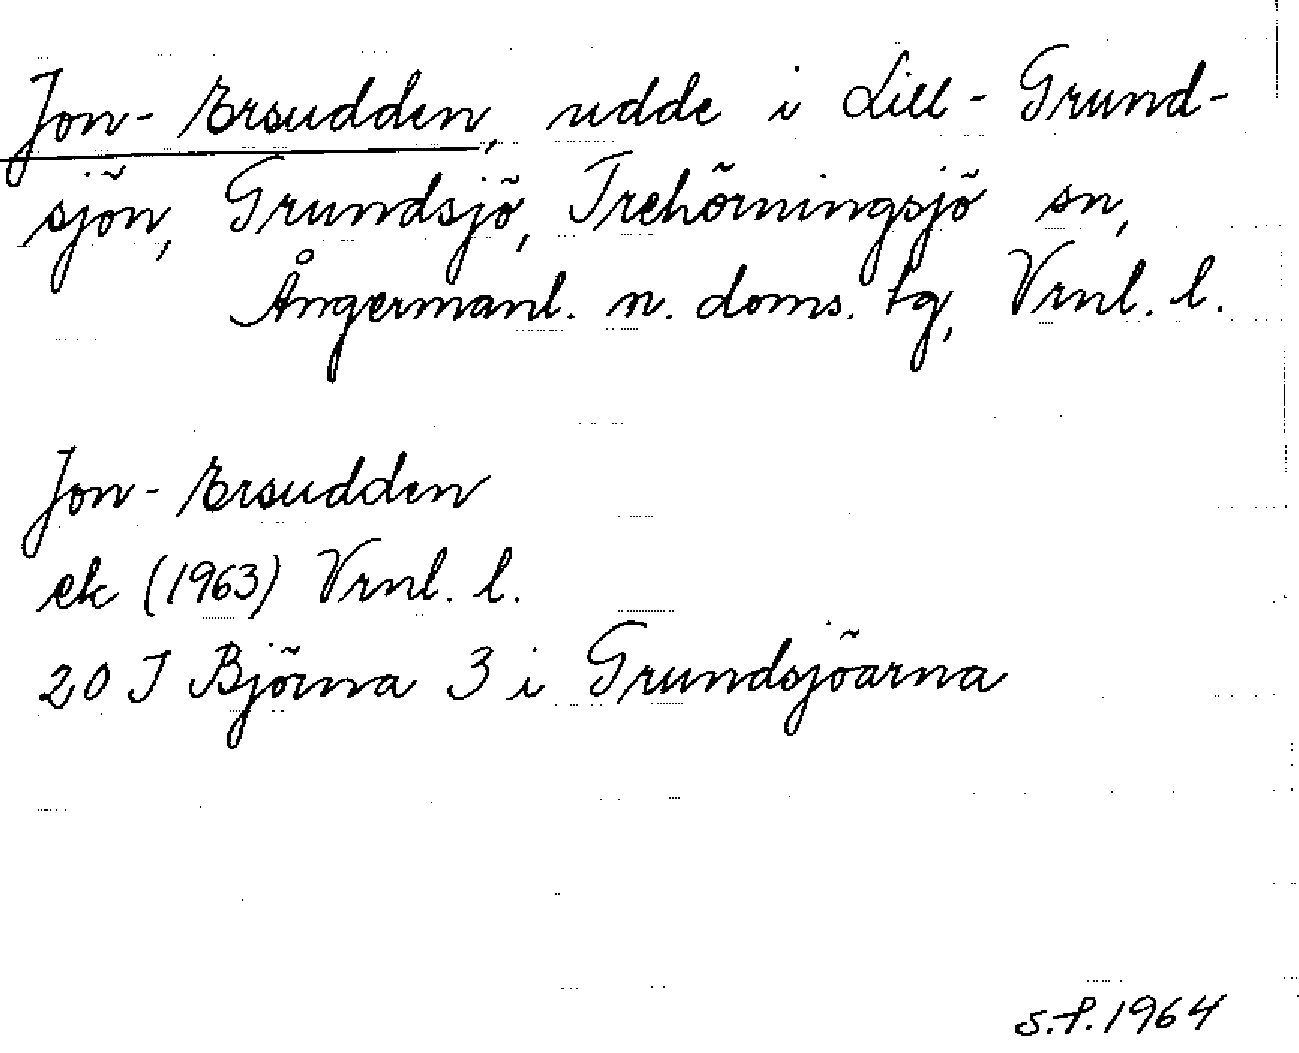 Jon-Ersudden, udde i Lill-Grund-
sjön, Grundsjö, Trehörningsjö sn,
Ångermanl. n. doms. tg, Vrnl. l.
Jon-Ersudden
ek (1963) Vrnl. l.
20 J Björna 3 i Grundsjöarna
S.P. 1964